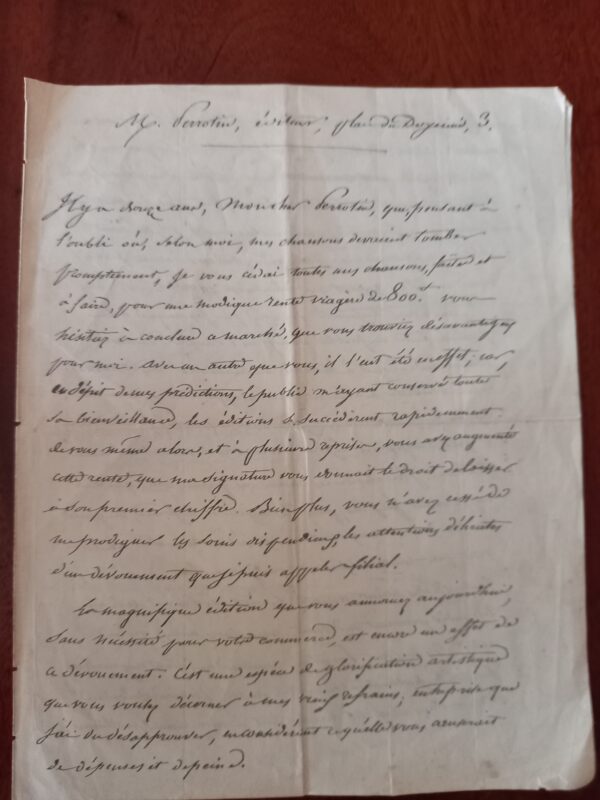 M. Perrotin, éditeur, place du Doyenné, 3.
Il y a douze ans, Mon cher Perrotin, que, pensant à
l'oubli où, selon moi, mes chansons devaient tomber
promptement, je vous cédai toutes mes chansons, faites et
à faire, pour une modique rente viagère de 800.f vous
hésitiez à conclure ce marché, que vous trouviez désavantageux
pour moi. Avec un autre que vous, il l'eut été en effet; car,
en dépit de mes prédictions, le public m'ayant conservé toute
sa bienveillance, les éditions se succédèrent rapidement.
de vous même alors, et à plusieurs reprises, vous avez augmenté
cette rente, que ma signature vous donnait le droit de laisser
à son premier chiffre. Bien plus, vous n'avez cessé de
me prodiguer les soins dispendieux, les attentions délicates
d'un dévouement que je puis appeler filial.
La magnifique édition que vous annoncez aujourd'hui,
sans nécessité pour votre commerce, est encore un effet de
ce dévouement. C'est une espèce de glorification artistique
que vous voulez décerner à mes vieux refrains, entreprise que
j'ai du désapprouver, en considérant ce qu'elle vous causerait
de dépenses et de peine.